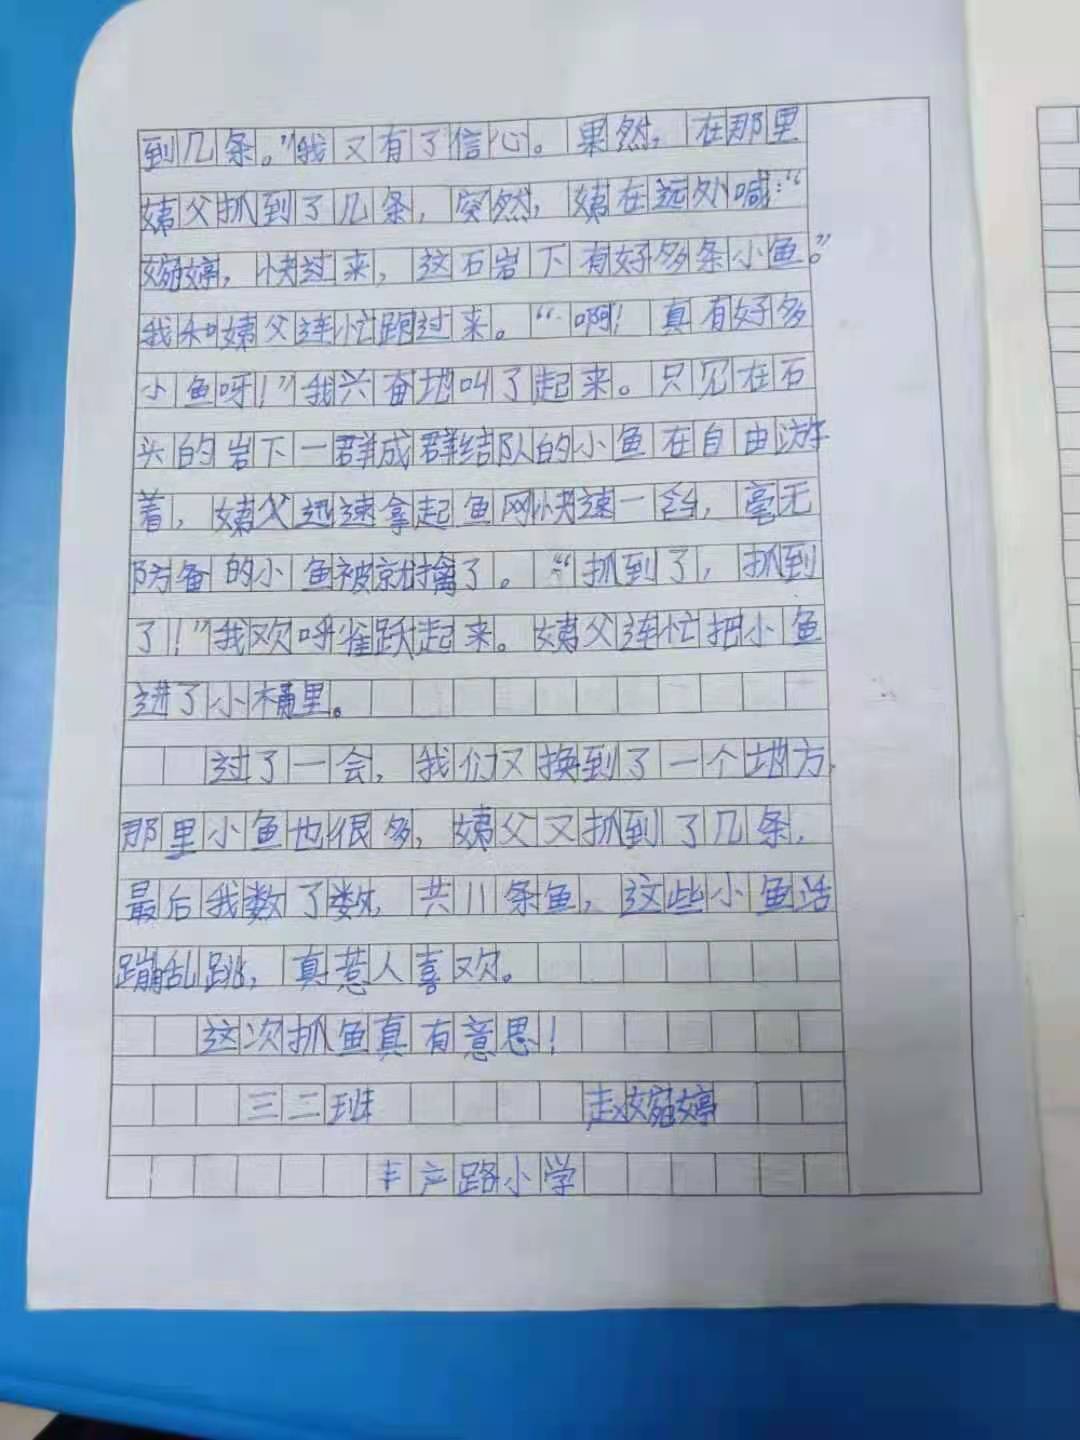 到几条。”我又有了信心。果然，在那里
姨父抓到了几条，突然，姨在远处喊：“
婉婷，快过来，这石岩下有好多条小鱼。”
我和姨父连忙跑过来。“啊！真有好多
小鱼呀！”我兴奋地叫了起来。只见在石
头的岩下一群成群结队的小鱼在自由游
着，姨父迅速拿起鱼网快速一，毫无
防备的小鱼被就擒了。“抓到了，抓到
了！”我欢呼雀跃起来。姨父连忙把小鱼
进了小桶里。
过了一会，我们又换到了一个地方，
那里小鱼也很多，姨父又抓到了几条，
最后我数了数，共11条鱼，这些小鱼活
蹦乱跳，真惹人喜欢。
这次抓鱼真有意思！
三二班 赵婉婷
丰产路小学